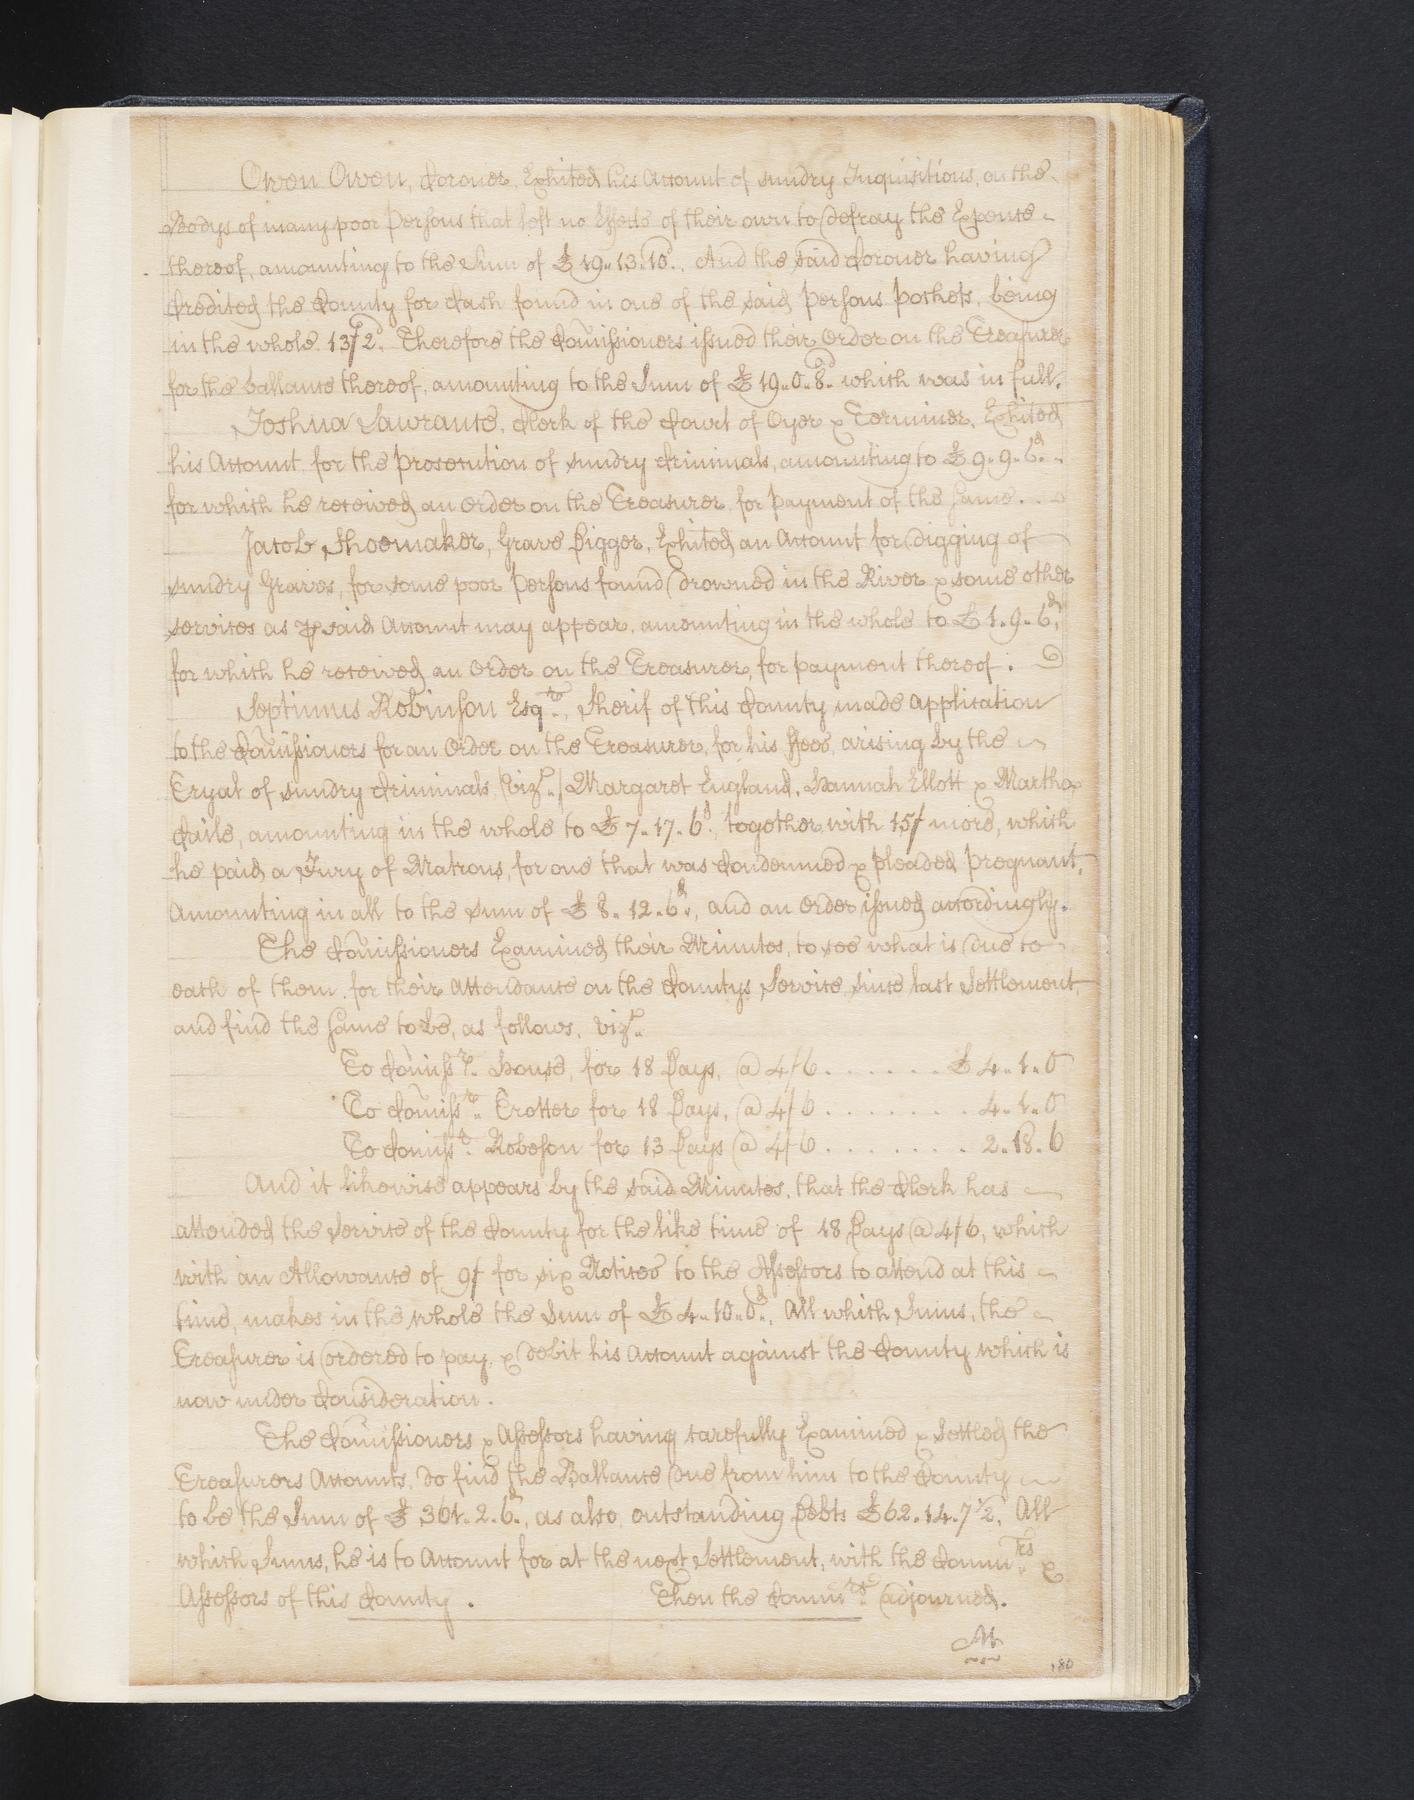 Owen Owen, Coroner, Exhited his Account of sundry Inquisitions, on the
Bodys of many poor Persons that left no Effects of their own to defray the Expence
thereof, amounting to the Sum of £ 19..13..10d. And the said Coroner having
Credited the County for Cash found in one of the said Persons Pockets, being
in the whole 13/2d. Therefore the Comissioners issued their Order on the Treasurer
for the ballance thereof, amounting to the Sum of £ 19..0..8d. which was in full.
Joshua Lawrance, Clerk of the Court of Oyer & Terminer, Exhited
his Account for the Prosecution of sundry Criminals, amounting to £ 9..9..6d.
for which he received an Order on the Treasurer, for Payment of the same...
Jacob Shoemaker, Grave Digger, Exhited an Account for digging of
sundry Graves, for some poor Persons found drowned in the River & some other
services as ⅌ said Account may appear, amounting in the whole to £ 1..9..6d,
for which he received an Order on the Treasurer, for payment thereof.
Septimus Robinson Esqr., Sherif of this County made Application
to the Comissioners for an Order on the Treasurer, for his ffees, arising by the
Tryal of sundry Criminals, (vizt.) Margaret England, Hannah Ellott & Martha
Caile, amounting in the whole to £ 7..17..6d, together with 15/ more, which
he paid a Jury of Matrons, for one that was Condemned & pleaded Pregnant,
Amounting in all to the sum of £ 8..12..6d., and an Order issued accordingly.
The Comissioners Examined their Minutes, to see what is due to
each of them for their Attendance on the Countys Service since last Settlement,
and find the same to be, as follows, vizt.
To Comissr. House, for 18 Days, @ 4/6 . . . . . . £ 4..1..0
To Comissr. Trotter for 18 Days, @ 4/6 . . . . . . . 4..1..0
To Comissr. Robeson for 13 Days @ 4/6 . . . . . . . 2..18..6
And it likewise appears by the said Minutes, that the Clerk has
attended the Service of the County for the like time of 18 Days @ 4/6, which
with an Allowance of 9/ for six Notices to the Assessors to attend at this
time, makes in the whole the Sum of £ 4..10..0d., All which Sums, the
Treasurer is ordered to pay, & debit his Account against the County which is
now under Consideration.
The Comissioners & Assessors having carefully Examined & Settled the
Treasurers Accounts, do find the Ballance due from him to the County
to be the Sum of £ 361..2..6d., as also outstanding Debts £62..14..7½, All
which Sums, he is to Account for at the next Settlement, with the Commrs. &
Assessors of this County. Then the Commrs. adjourned.
180